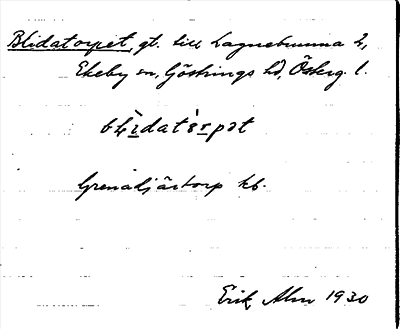 Blidatorpet, gt. till Lagnebrunna h,
Ekeby sn, Göstrings hd, Österg. l.
Grenadjärtorp kb.
Erik Alm 1930